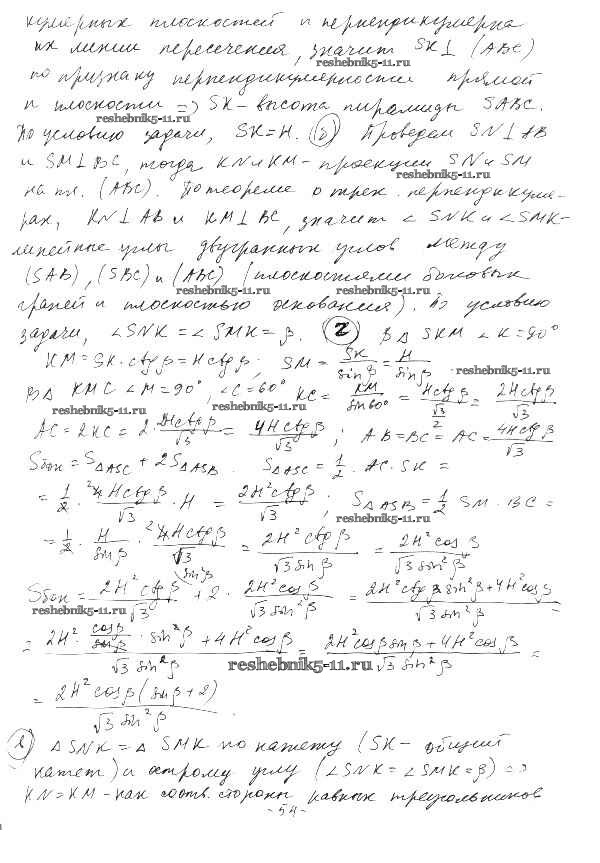 кулярных плоскостей и перпендикулярна
их линии пересечения, значит SK⊥ (ABC)
reshebnik5-11.ru
по признаку перпендикулярности прямой
и плоскости => SK-высота пирамиды SABC.
reshebnik5-11.ru
По условию задачи, SK=H. б) Проведем SN⊥AB
и SM⊥BC, тогда KN и KM- проекции SN и SM
reshebnik5-11.ru
на пл. (ABC). По теореме о трех перпендикуля-
рах, KN⊥AB и KM⊥BC, значит ∠SNK и ∠SMK-
линейные углы двугранных углов между
(SAB), (SBC) и (ABC) (плоскостями боковых
reshebnik5-11.ru reshebnik5-11.ru
граней и плоскостью основания). По условию
задачи, ∠SNK=∠SMK=β. 2 В Δ SKM ∠K=90°
KM=SK·ctgβ=Hctgβ; SM= SK/sinβ = H/sinβ
reshebnik5-11.ru
В Δ KMC ∠M=90°, ∠C=60° KC= KM/sin60° = Hctgβ/(√3/2) = 2Hctgβ/√3
reshebnik5-11.ru reshebnik5-11.ru
AC=2KC=2·2Hctgβ/√3 = 4Hctgβ/√3; AB=BC=AC=4Hctgβ/√3
Sбок=SΔASC+2SΔASB. SΔASC=1/2·AC·SK=
=1/2·4Hctgβ/√3·H=2H²ctgβ/√3; SΔASB=1/2 SM·BC=
reshebnik5-11.ru
=1/2·H/sinβ·4Hctgβ/√3=2H²ctgβ/√3sinβ=2H²cosβ/√3sin²β
Sбок=2H²ctgβ/√3+2·2H²cosβ/√3sin²β=2H²ctgβ·sin²β+4H²cosβ/√3sin²β
reshebnik5-11.ru
=2H²·cosβ/sinβ·sin²β+4H²cosβ/√3sin²β=2H²cosβsinβ+4H²cosβ/√3sin²β=
reshebnik5-11.ru
=2H²cosβ(sinβ+2)/√3sin²β.
Δ SNK=Δ SMK по катету (SK- общий
катет) и острому углу (∠SNK=∠SMK=β) =>
KN=KM-как соотв. стороны равных треугольников
-54-